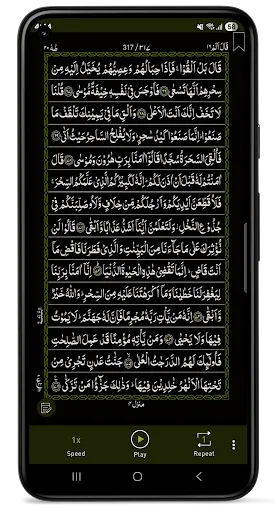 58
طٰهٰ ٢٠ 317 / ٣١٧ قَالَ اَلَمْ ١٦
قَالَ بَلْ اَلْقُوْا ۚ فَاِذَا حِبَالُهُمْ وَعِصِيُّهُمْ يُخَيَّلُ اِلَيْهِ مِنْ
سِحْرِهِمْ اَنَّهَا تَسْعٰى ﴿٦٦﴾ فَاَوْجَسَ فِيْ نَفْسِهٖ خِيْفَةً مُّوْسٰى ﴿٦٧﴾ قُلْنَا
لَا تَخَفْ اِنَّكَ اَنْتَ الْاَعْلٰى ﴿٦٨﴾ وَاَلْقِ مَا فِيْ يَمِيْنِكَ تَلْقَفْ مَا
صَنَعُوْا ؕ اِنَّمَا صَنَعُوْا كَيْدُ سٰحِرٍ ؕ وَلَا يُفْلِحُ السَّاحِرُ حَيْثُ اَتٰى ﴿٦٩﴾
فَاُلْقِيَ السَّحَرَةُ سُجَّدًا قَالُوْۤا اٰمَنَّا بِرَبِّ هٰرُوْنَ وَمُوْسٰى ﴿٧٠﴾ قَالَ
اٰمَنْتُمْ لَهٗ قَبْلَ اَنْ اٰذَنَ لَكُمْ ؕ اِنَّهٗ لَكَبِيْرُكُمُ الَّذِيْ عَلَّمَكُمُ السِّحْرَ ۚ
فَلَاُقَطِّعَنَّ اَيْدِيَكُمْ وَاَرْجُلَكُمْ مِّنْ خِلَافٍ وَّلَاُصَلِّبَنَّكُمْ فِيْ
جُذُوْعِ النَّخْلِ ؗ وَلَتَعْلَمُنَّ اَيُّنَاۤ اَشَدُّ عَذَابًا وَّاَبْقٰى ﴿٧١﴾ قَالُوْا لَنْ
نُّؤْثِرَكَ عَلٰى مَا جَآءَنَا مِنَ الْبَيِّنٰتِ وَالَّذِيْ فَطَرَنَا فَاقْضِ مَاۤ
اَنْتَ قَاضٍ ؕ اِنَّمَا تَقْضِيْ هٰذِهِ الْحَيٰوةَ الدُّنْيَا ﴿٧٢﴾ اِنَّاۤ اٰمَنَّا بِرَبِّنَا
لِيَغْفِرَ لَنَا خَطٰيٰنَا وَمَاۤ اَكْرَهْتَنَا عَلَيْهِ مِنَ السِّحْرِ ؕ وَاللّٰهُ خَيْرٌ
وَّاَبْقٰى ﴿٧٣﴾ اِنَّهٗ مَنْ يَّاْتِ رَبَّهٗ مُجْرِمًا فَاِنَّ لَهٗ جَهَنَّمَ ؕ لَا يَمُوْتُ
فِيْهَا وَلَا يَحْيٰى ﴿٧٤﴾ وَمَنْ يَّاْتِهٖ مُؤْمِنًا قَدْ عَمِلَ الصّٰلِحٰتِ
فَاُولٰٓئِكَ لَهُمُ الدَّرَجٰتُ الْعُلٰى ﴿٧٥﴾ جَنّٰتُ عَدْنٍ تَجْرِيْ مِنْ
تَحْتِهَا الْاَنْهٰرُ خٰلِدِيْنَ فِيْهَا ؕ وَذٰلِكَ جَزٰٓؤُا مَنْ تَزَكّٰى ﴿٧٦﴾
منزل ٤
1x 1
Speed Play Repeat